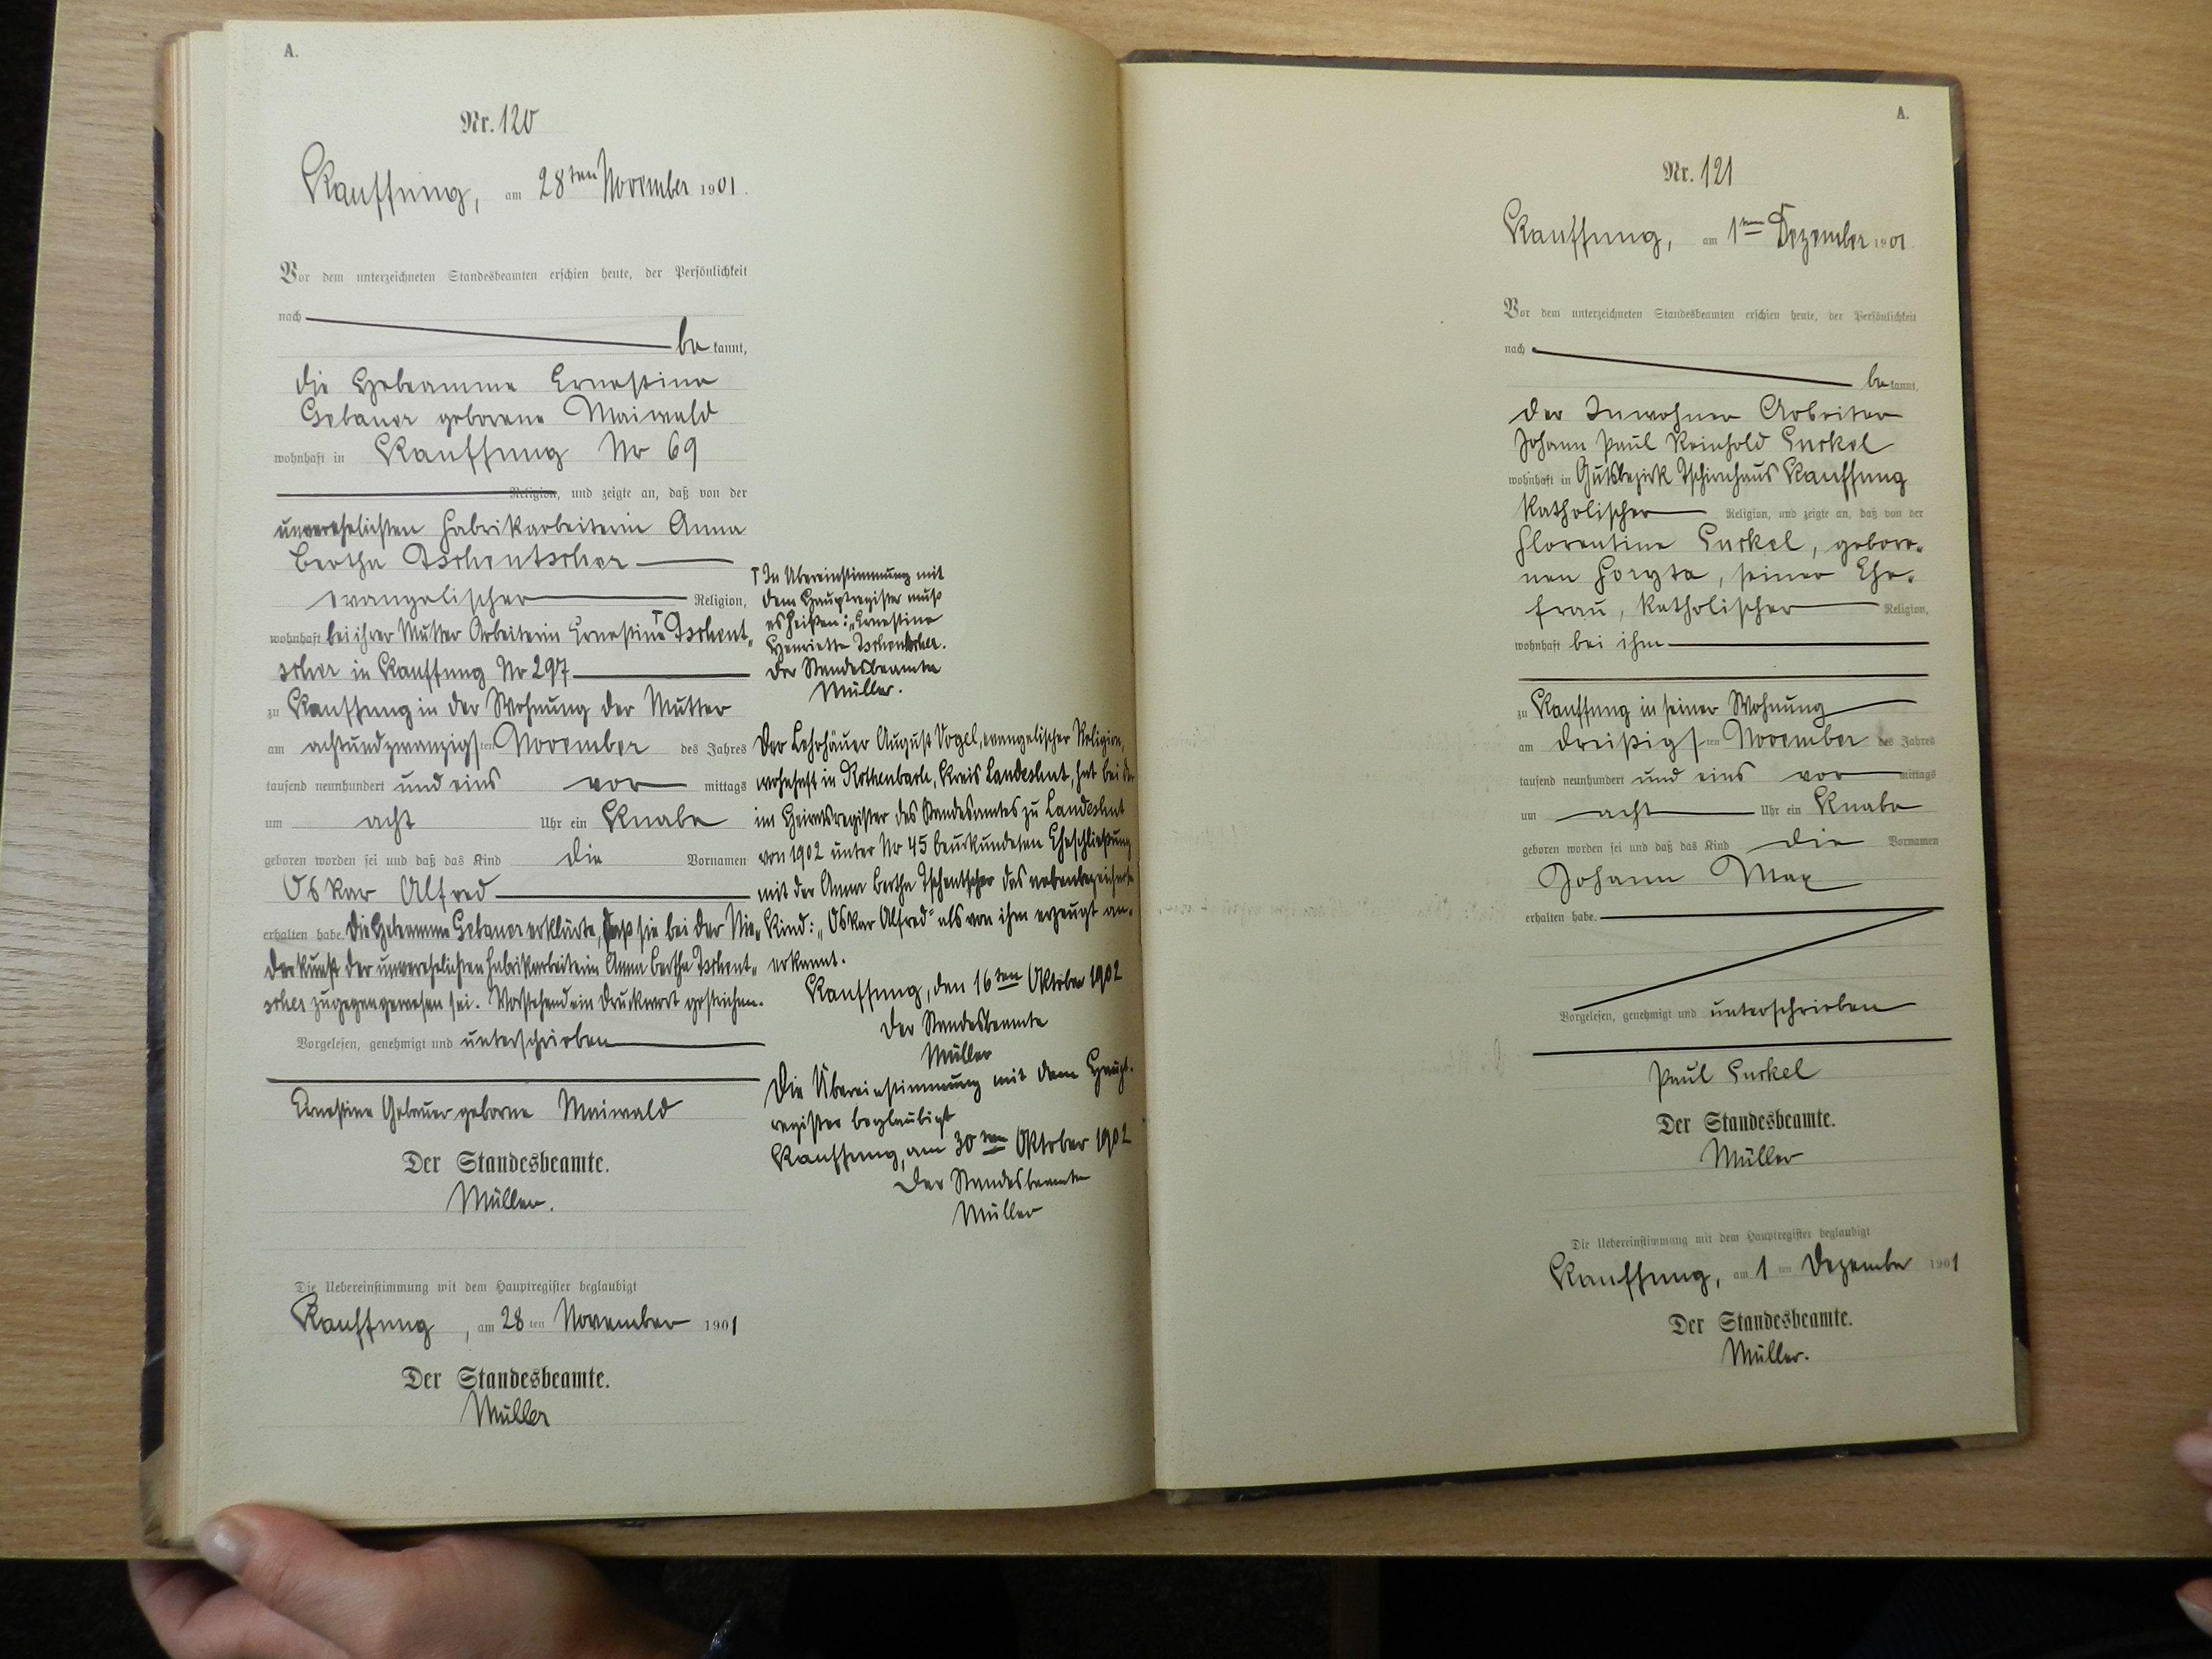 A.
Nr. 120
Kauffung, am 28ten November 1901.
Vor dem unterzeichneten Standesbeamten erschien heute, der Persönlichkeit
nach
bekannt,
die Hebeamme Ernestine
Gebauer geborene Maiwald
wohnhaft in Kauffung No 69
Religion, und zeigte an, daß von der
unverehelichten Fabrikarbeiterin Anna
Bertha Tschentscher
evangelischer Religion,
wohnhaft bei ihrer Mutter Arbeiterin Ernestine ⊤ Tschent„
scher in Kauffung No 297
zu Kauffung in der Wohnung der Mutter
am achtundzwanzigsten November des Jahres
tausend neunhundert und eins vor mittags
um acht Uhr ein Knabe
geboren worden sei und daß das Kind die Vornamen
Oskar Alfred
erhalten habe. Die Hebeamme Gebauer erklärte, daß sie bei der Nie„
derkunft der unverehelichten Fabrikarbeiterin Anna Bertha Tschent„
scher zugegen gewesen sei. Vorstehend ein Druckwort gestrichen.
Vorgelesen, genehmigt und unterschrieben
Ernestine Gebauer geborne Maiwald
Der Standesbeamte.
Müller.
Die Uebereinstimmung mit dem Hauptregister beglaubigt
Kauffung, am 28 ten November 1901
Der Standesbeamte.
Müller
⊤ In Übereinstimmung mit
dem Hauptregister muß
es heißen: „Ernestine
Henriette Tschentscher.
Der Standesbeamte
Müller.
Der Lehrhäuer August Vogel, evangelischer Religion,
wohnhaft in Rothenbach, Kreis Landeshut, hat bei der
im Heiratsregister des Standesamtes zu Landeshut
von 1902 unter No 45 beurkundeten Eheschließung
mit der Anna Bertha Tschentscher das nebenbezeichnete
Kind: „Oskar Alfred" als von ihm erzeugt an„
erkannt.
Kauffung, den 16ten Oktober 1902
Der Standesbeamte
Müller
Die Übereinstimmung mit dem Haupt„
register beglaubigt
Kauffung, am 30ten Oktober 1902
Der Standesbeamte
Müller
A.
Nr. 121
Kauffung, am 1ten Dezember 1901
Vor dem unterzeichneten Standesbeamten erschien heute, der Persönlichkeit
nach
bekannt,
der Inwohner Arbeiter
Johann Paul Reinhold
wohnhaft in Gutsbezirk Tschirnhaus Kauffung
katholischer Religion, und zeigte an, daß von der
Florentine gebore„
nen seiner Ehe„
frau, katholischer Religion,
wohnhaft bei ihm
zu Kauffung in seiner Wohnung
am dreißigsten November des Jahres
tausend neunhundert und eins vor mittags
um acht Uhr ein Knabe
geboren worden sei und daß das Kind die Vornamen
Johann Max
erhalten habe.
Vorgelesen, genehmigt und unterschrieben
Paul
Der Standesbeamte.
Müller
Die Uebereinstimmung mit dem Hauptregister beglaubigt
Kauffung, am 1 ten Dezember 1901
Der Standesbeamte.
Müller.